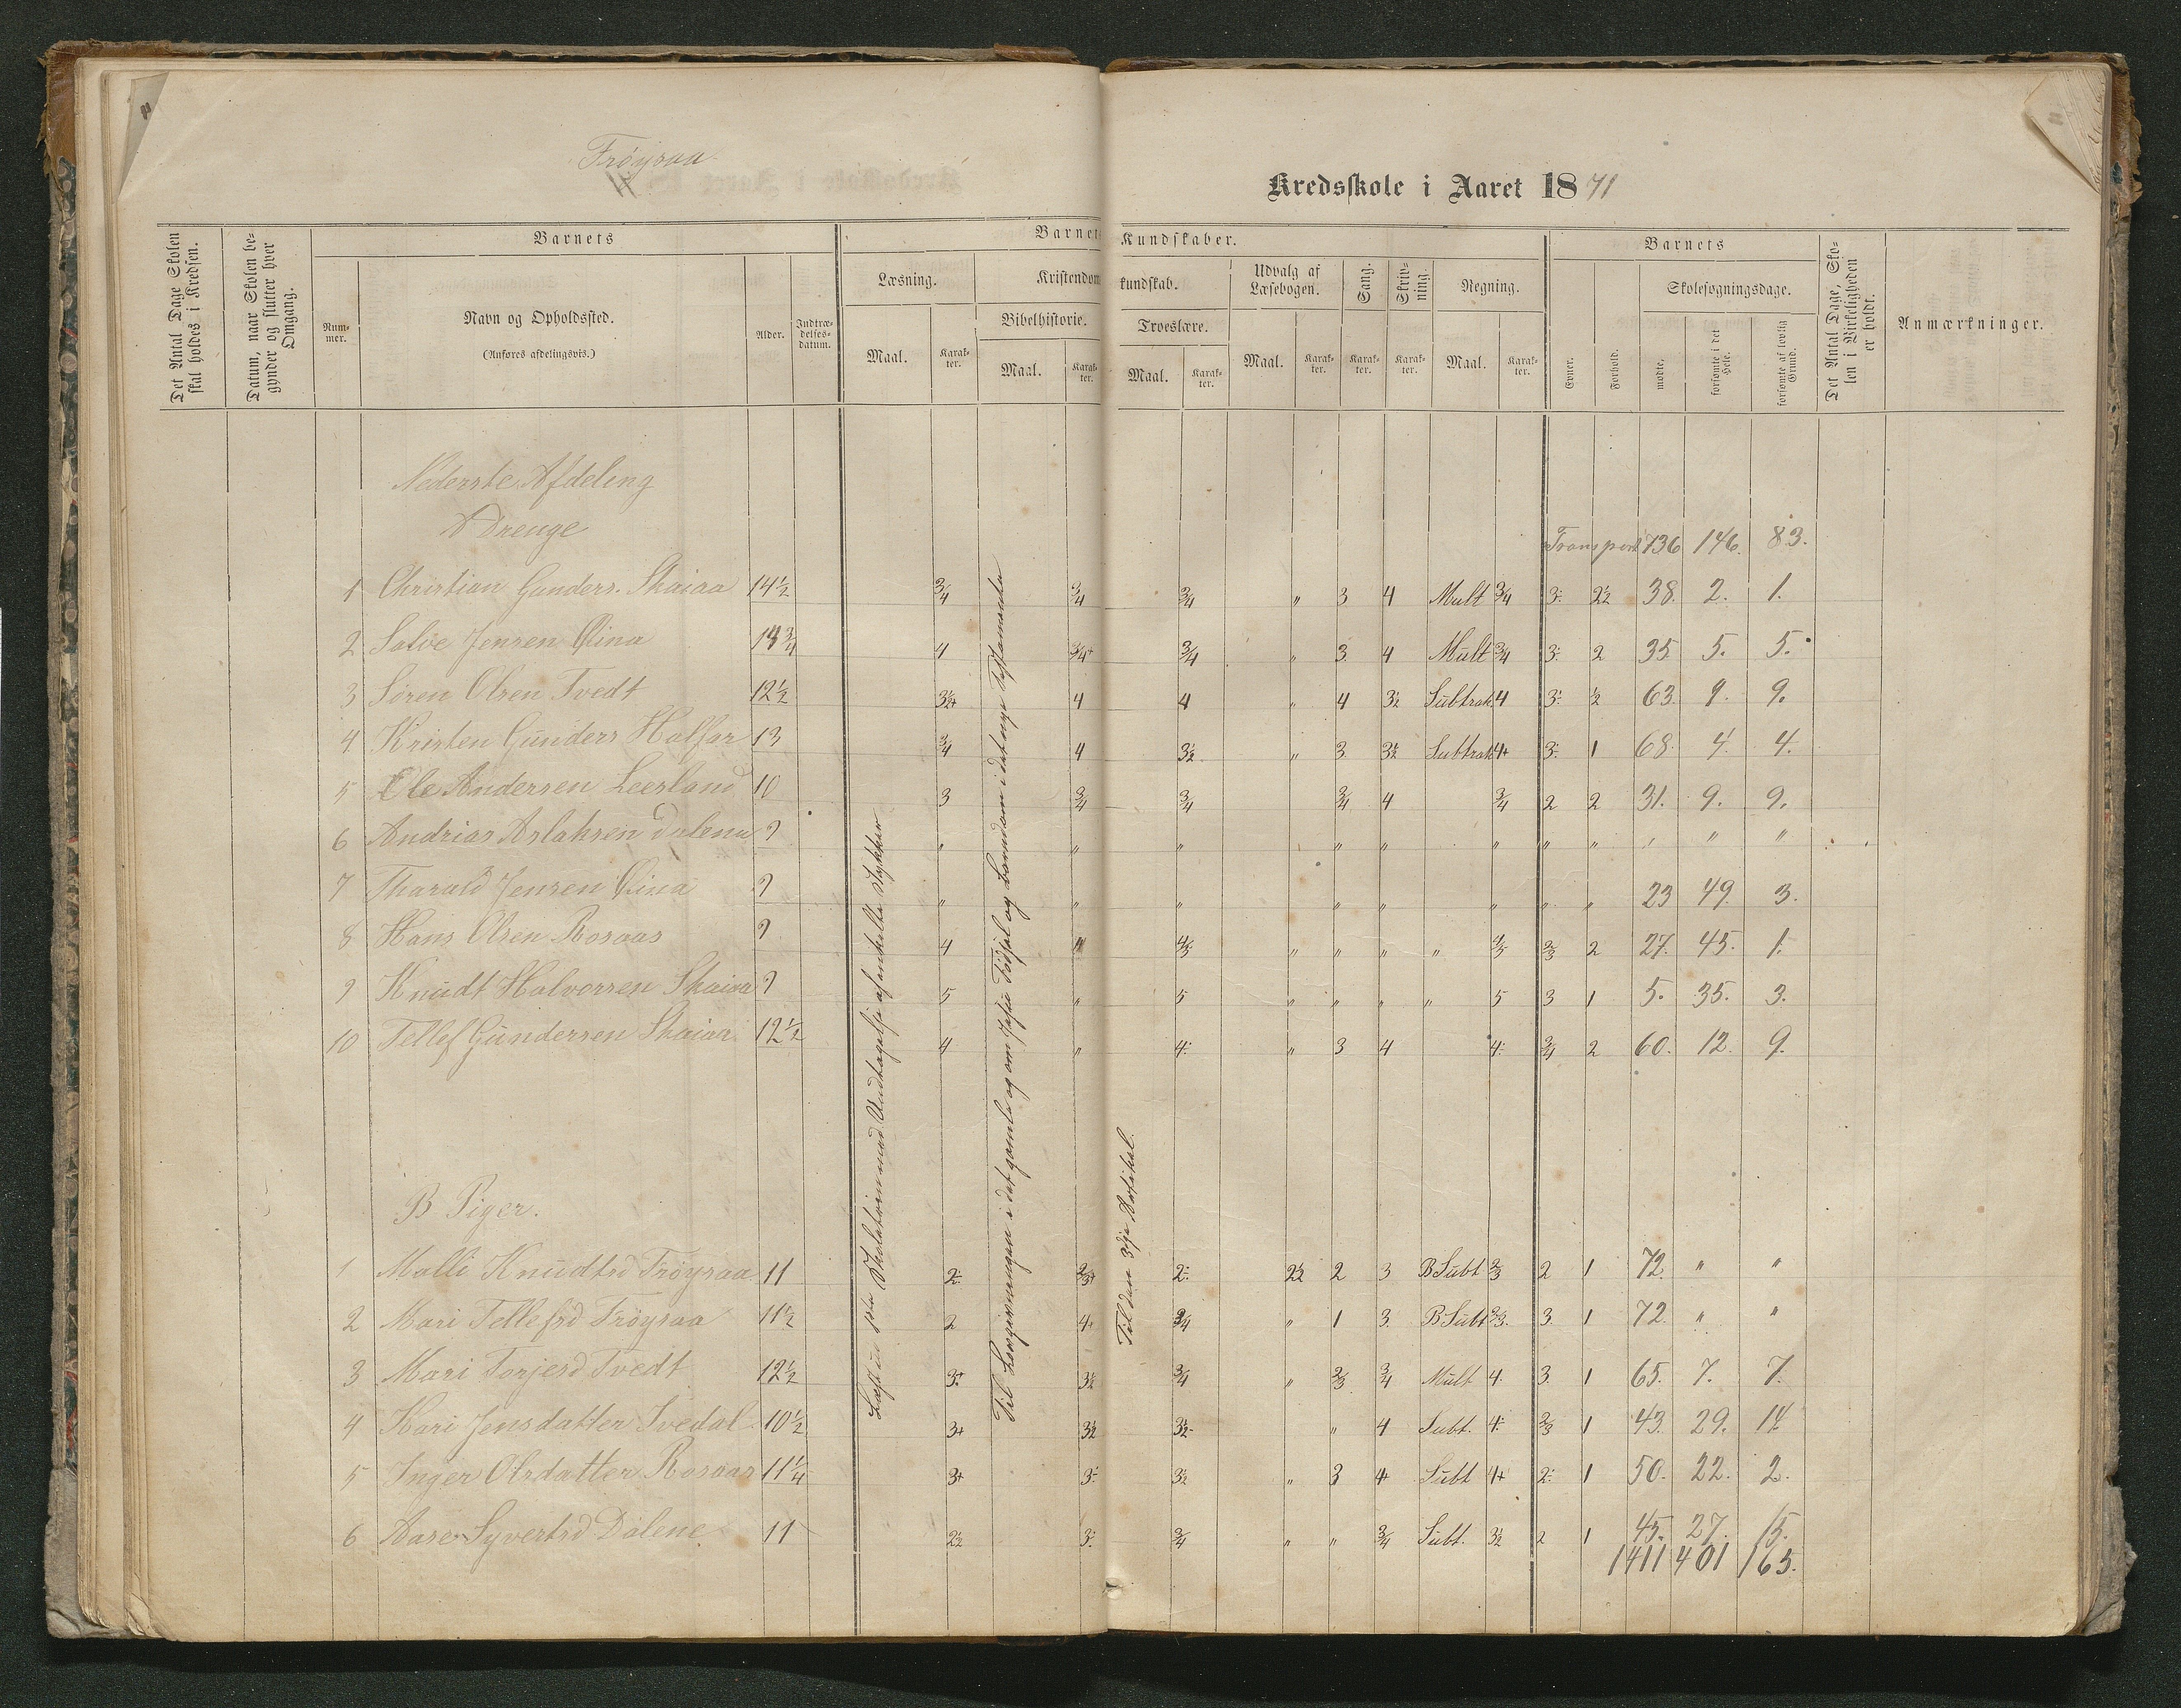 Frøysaa
Kredsskole i Aaret 1871
Det Antal Dage Skolen skal holdes i Kredsen.
Datum, naar Skolen begynder og slutter hver Omgang.
Barnets
Nummer.
Navn og Opholdssted.
(Anføres afdelingsvis.)
Alder.
Indtrædelsesdatum.
Barnets
Kundskaber.
Læsning.
Maal.
Karakter.
Kristendom
kundskab.
Bibelhistorie.
Maal.
Karakter.
Troeslære.
Maal.
Karakter.
Udvalg af Læsebogen.
Maal.
Karakter.
Sang.
Karakter.
Skrivning.
Karakter.
Regning.
Maal.
Karakter.
Barnets
Evner.
Forhold.
Skolesøgningsdage.
mødte.
forsømte i det Hele.
forsømte af lovlig Grund.
Det Antal Dage, Skolen i Virkeligheden er holdt.
Anmærkninger.
Nederste Afdeling
A Drenge
Transport 736 146. 83.
1 Christian Gunders. Skaiaa 14½ ¾ ¾ ¾ " 3 4 Mult ¾ 3- 2½ 38. 2. 1.
2 Salve Jensen 13¾ 4 ¾+ ¾ " 3. 4 Mult ¾ 3- 2 35 5. 5.
3 Søren Olsen Tvedt 12½ 3½+ 4 4 " 4 3½ Subtrak 4 3- ½ 63. 9. 9.
4 Kristen Gunders 13 ¾ 4 3½ " 3. 3½ Subtrak 4+ 3- 1 68. 4. 4.
5 Ole Andersen Leesland 10 3 ¾ ¾ ¾ 4 ¾ 2 2 31. 9. 9.
6 Andrias Aslaksen Dalena 9 " " " " " " " " " " "
7 Tharald Jensen 9 " " " " " " " " 23 49. 3.
8 Hans Olsen Rosaas 9 4 4 4/5 " " " " 4/5 2/3 2 27. 45. 1.
9 Knudt Halvorsen Skaiaa 9 5 " 5 " " " " 5 3 1 5. 35. 3.
10 Tellef Gundersen Skaiaa 12½ 4 " 4- " 3 4 4- ¾ 2 60. 12. 9.
Læst i 1ste med Undtagelse af enkelte Stykker
Til Lovgivningen i det gamle og om Jesu Fødsel og Barndom i det nye Testamente
Til den 3dje Artikel.
B Piger.
1 Malli Knudtsd Frøysaa 11 2- 2/3+ 2- 2½ 2 3 B Subt 2/3 2 1 72. " "
2 Mari Tellefsd Frøysaa 11½ 2 4+ ¾ " 1 3. B Subt 2/3. 3. 1 72. " "
3 Mari Torjesd Tvedt 12½ 3+ 3½ ¾ " 2/3 ¾ Mult 4. 3. 1 65. 7. 7.
4 Kari Jensdatter Ivedal 10½ 3+ 3½ 3½- " 4 Subt. 4- 2/3 1 43. 29. 14.
5 Inger Olsdatter Rosaas 11¼ 3+ 3- 3½ " 3 4+ Subt 4+ 2- 1 50. 22. 2.
6 Aase Syvertsd Dalene 11 2½ 3- ¾ " " ¾ Subt. 3½ 2 1 45. 27. 15.
1411 401 165.